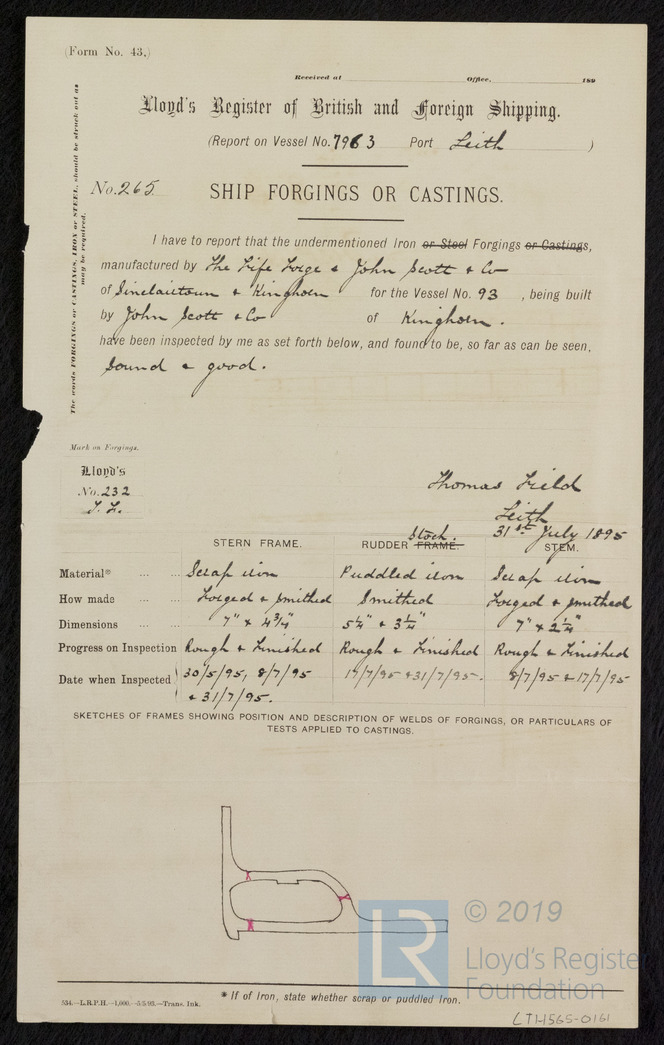 (Form No. 43.)
Received at Office, 189
Lloyd's Register of British and Foreign Shipping.
(Report on Vessel No. 7963 Port Leith )
The words FORGINGS or CASTINGS, IRON or STEEL, should be struck out as
may be required.
No. 265 SHIP FORGINGS OR CASTINGS.
I have to report that the undermentioned Iron or Steel Forgings or Castings,
manufactured by The Fife Forge & John Scott & Co
of Sinclairtown & Kinghorn for the Vessel No. 93 , being built
by John Scott & Co of Kinghorn.
have been inspected by me as set forth below, and found to be, so far as can be seen,
Sound & good.
Mark on Forgings.
Lloyd's
No. 232
T. F.
Thomas Field
Leith
31st July 1895
STERN FRAME. RUDDER FRAME. Stock. STEM.
Material* ... ... Scrap iron Puddled iron Scrap iron
How made ... ... Forged & smithed Smithed Forged & smithed
Dimensions ... ... 7" x 4 3/4" 5 1/4" & 3 1/4" 7" x 2 1/4"
Progress on Inspection Rough & Finished Rough & Finished Rough & Finished
Date when Inspected 30/5/95, 8/7/95 17/7/95 & 31/7/95. 8/7/95 & 17/7/95
& 31/7/95.
SKETCHES OF FRAMES SHOWING POSITION AND DESCRIPTION OF WELDS OF FORGINGS, OR PARTICULARS OF
TESTS APPLIED TO CASTINGS.
LR
© 2019
Lloyd's Register
Foundation
* If of Iron, state whether scrap or puddled Iron.
534.—L.R.P.H.—1,000.—5/5/93.—Trans. Ink.
LTH565-0161